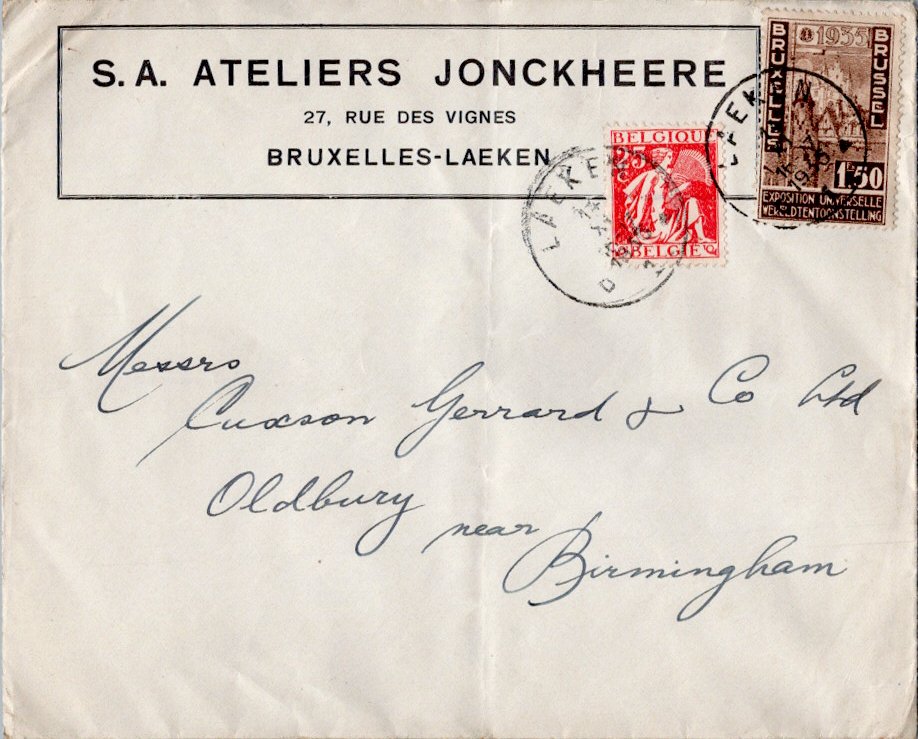 S.A. ATELIERS JONCKHEERE
27, RUE DES VIGNES
BRUXELLES-LAEKEN
BELGIQUE
25
BELGIË
1935
BRUXELLES
BRUSSEL
1.50
EXPOSITION UNIVERSELLE
WERELDTENTOONSTELLING
LAEKEN
1935
Messrs
Cuxson Gerrard & Co Ltd
Oldbury
near
Birmingham